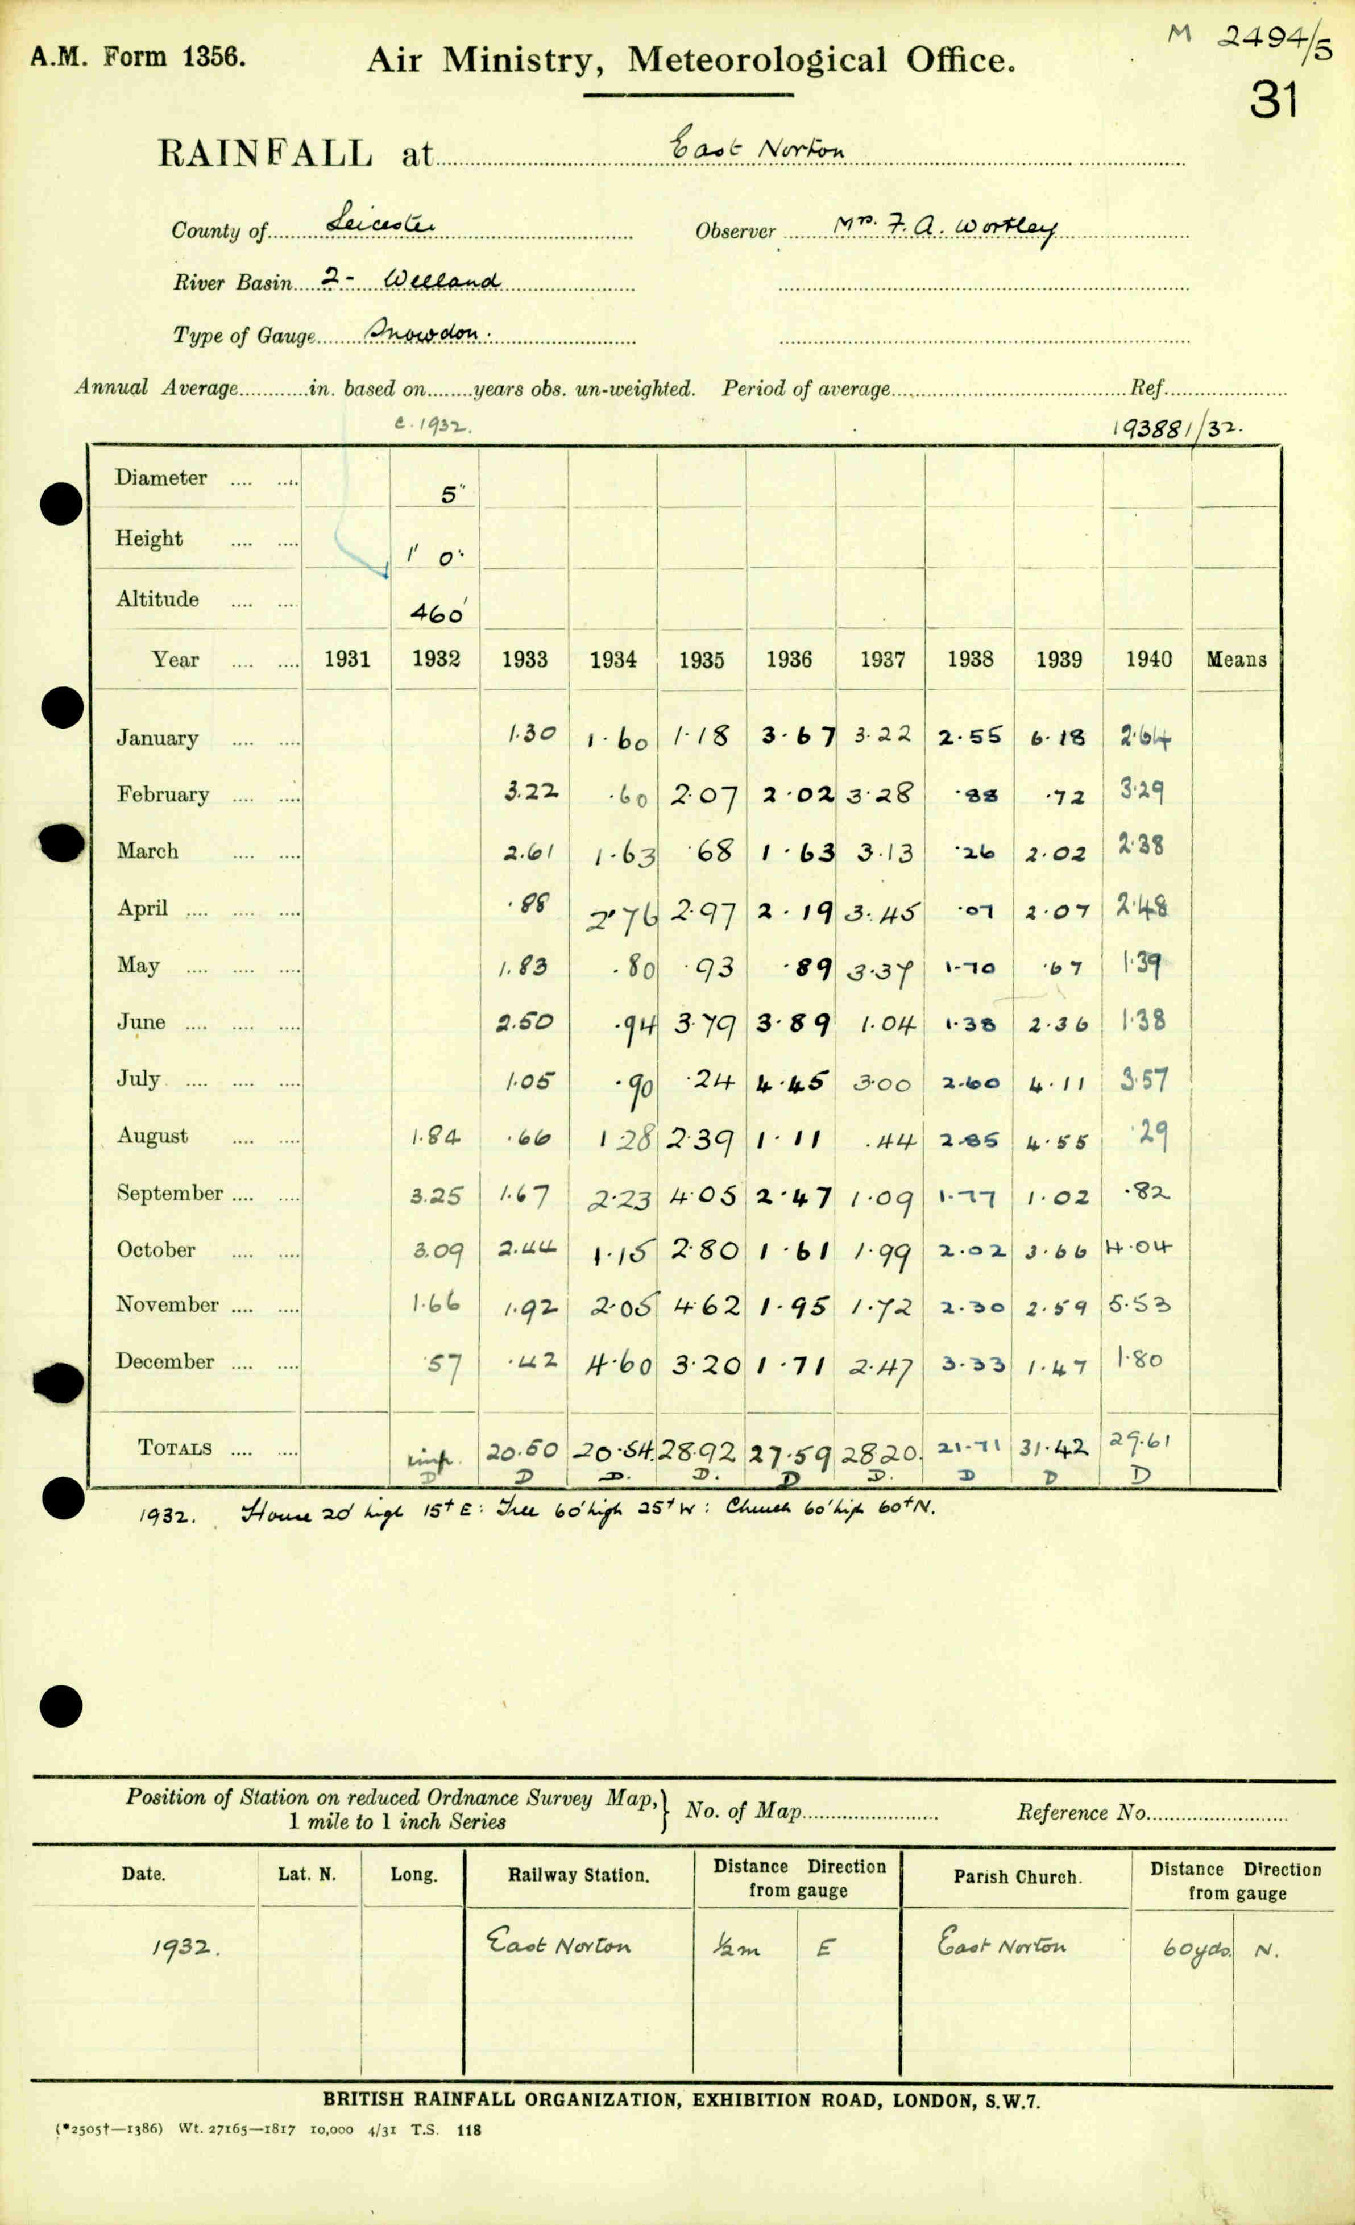 M 2494/5
A.M. Form 1356. Air Ministry, Meteorological Office.
31
RAINFALL at East Norton
County of Leicester Observer Mrs. F. A. Wortley
River Basin 2 - Welland
Type of Gauge Snowdon.
Annual Average in. based on years obs. un-weighted. Period of average Ref.
c. 1932. 193881/32.
Diameter .... .... 5"
Height .... .... 1' 0"
Altitude .... .... 460'
Year .... .... 1931 1932 1933 1934 1935 1936 1937 1938 1939 1940 Means
January .... .... 1.30 1.60 1.18 3.67 3.22 2.55 6.18 2.64
February .... .... 3.22 .60 2.07 2.02 3.28 .88 .72 3.29
March .... .... 2.61 1.63 .68 1.63 3.13 .26 2.02 2.38
April .... .... .... .88 2.76 2.97 2.19 3.45 .07 2.07 2.48
May .... .... .... 1.83 .80 .93 .89 3.37 1.70 .67 1.39
June .... .... .... 2.50 .94 3.79 3.89 1.04 1.38 2.36 1.38
July .... .... .... 1.05 .90 .24 4.45 3.00 2.60 4.11 3.57
August .... .... 1.84 .66 1.28 2.39 1.11 .44 2.85 4.55 .29
September .... .... 3.25 1.67 2.23 4.05 2.47 1.09 1.77 1.02 .82
October .... .... 3.09 2.44 1.15 2.80 1.61 1.99 2.02 3.66 4.04
November .... .... 1.66 1.92 2.05 4.62 1.95 1.72 2.30 2.59 5.53
December .... .... .57 .42 4.60 3.20 1.71 2.47 3.33 1.47 1.80
TOTALS .... .... imp. 20.50 20.54 28.92 27.59 28.20. 21.71 31.42 29.61
D D D. D. D D. D D D
1932. House 20' high 15+ E : Tree 60' high 25+ W : Church 60' high 60+ N.
Position of Station on reduced Ordnance Survey Map, } No. of Map Reference No.
1 mile to 1 inch Series
Date. Lat. N. Long. Railway Station. Distance Direction from gauge Parish Church. Distance Direction from gauge
1932. East Norton ½m E East Norton 60yds. N.
BRITISH RAINFALL ORGANIZATION, EXHIBITION ROAD, LONDON, S.W.7.
(*2505†—1386) Wt. 27165—1817 10,000 4/31 T.S. 118